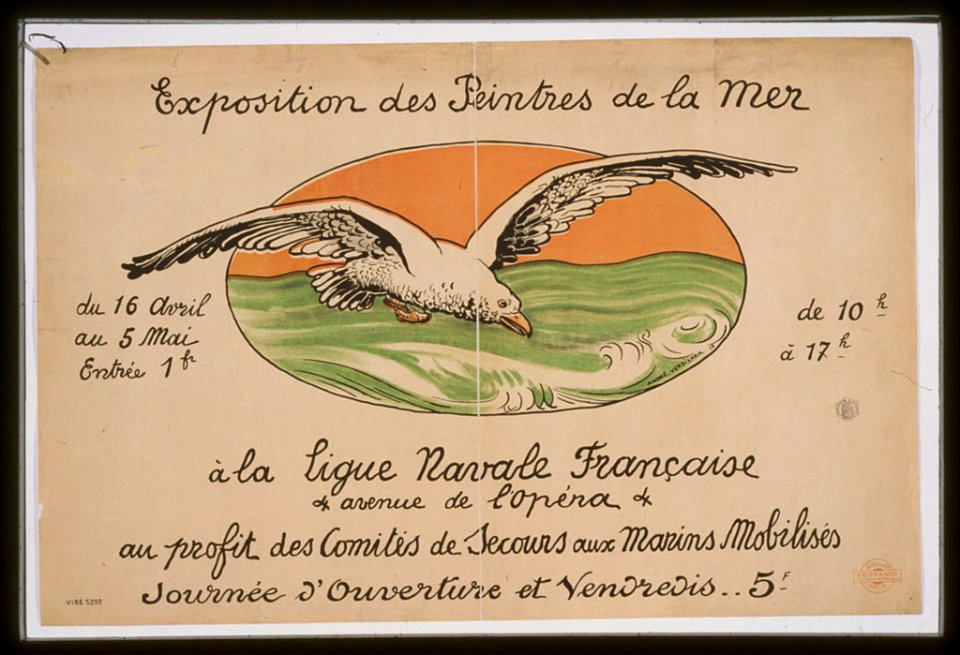 Exposition des Peintres de la Mer
du 16 Avril
au 5 Mai
Entrée 1fr
de 10 h
à 17 h
ANDRÉ.VERDILHAN.
à la Ligue Navale Française
avenue de l'opéra
au profit des Comités de Secours aux Marins Mobilisés
Journée d'Ouverture et Vendredis.. 5F
VISÉ 5292